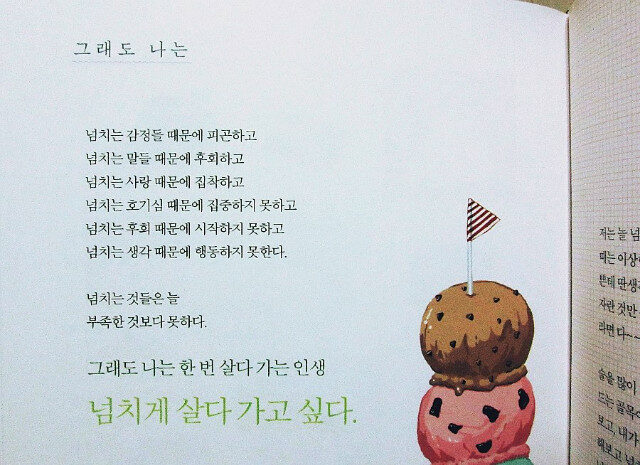 그래도 나는
넘치는 감정들 때문에 피곤하고
넘치는 말들 때문에 후회하고
넘치는 사랑 때문에 집착하고
넘치는 호기심 때문에 집중하지 못하고
넘치는 후회 때문에 시작하지 못하고
넘치는 생각 때문에 행동하지 못한다.
넘치는 것들은 늘
부족한 것보다 못하다.
그래도 나는 한 번 살다 가는 인생
넘치게 살다 가고 싶다.
저는 늘
때는 이상
뿐 딴생
자란 것만
라면 다~~
술을 많이
뜨는 골목
보고, 내가
해보고